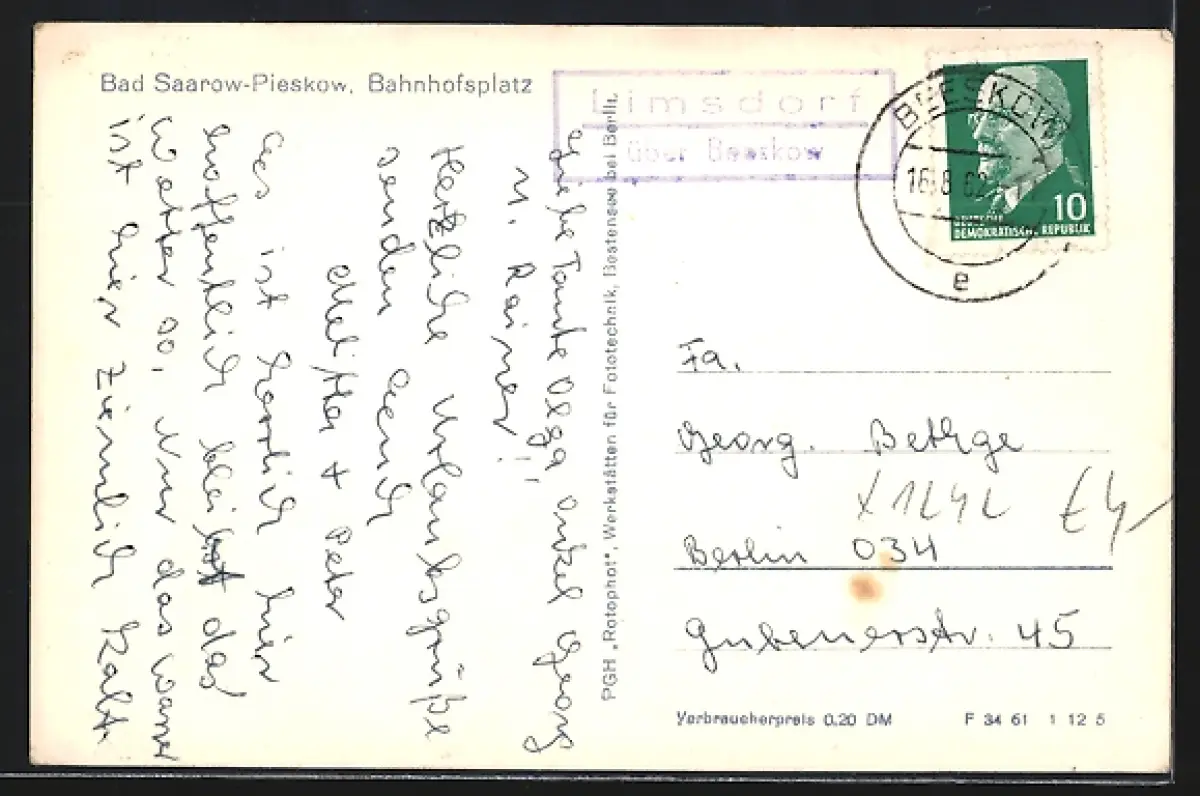 Bad Saarow-Pieskow, Bahnhofsplatz
Limsdorf
über Beeskow
BEESKOW
16.8.62
e
10
DEUTSCHE
DEMOKRATISCHE REPUBLIK
Liebe Tante Olga Onkel Georg
u. Rainer!
Herzliche Urlaubsgrüße
senden Euch
Melitta + Peter
Es ist herrlich hier
hoffentlich bleibt das
Wetter so, Nur das Wasser
ist hier ziemlich kalt.
PGH „Rotophot", Werkstätten für Fototechnik, Bestensee bei Berlin.
Fa.
Georg. Bethge
Berlin 034
Gubenerstr. 45
Verbraucherpreis 0,20 DM
F 34 61 1 12 5